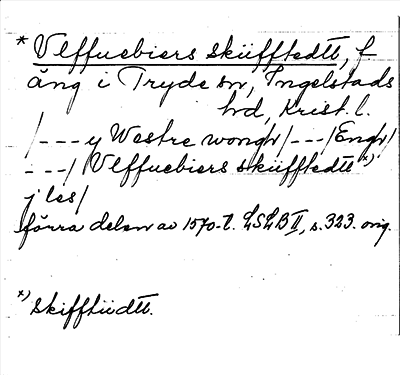 * Vlffuebiers skiifftedtt, f.
äng i Tryde sn, Ingelstads
hd, Krist. l.
/--- y Westre wongh/---/Engh/
---/ Vlffuebiers skiifftedtt x)
j les/
förra delen av 1570-t. LSLB II, s. 323. orig.
x) skifftiidtt.